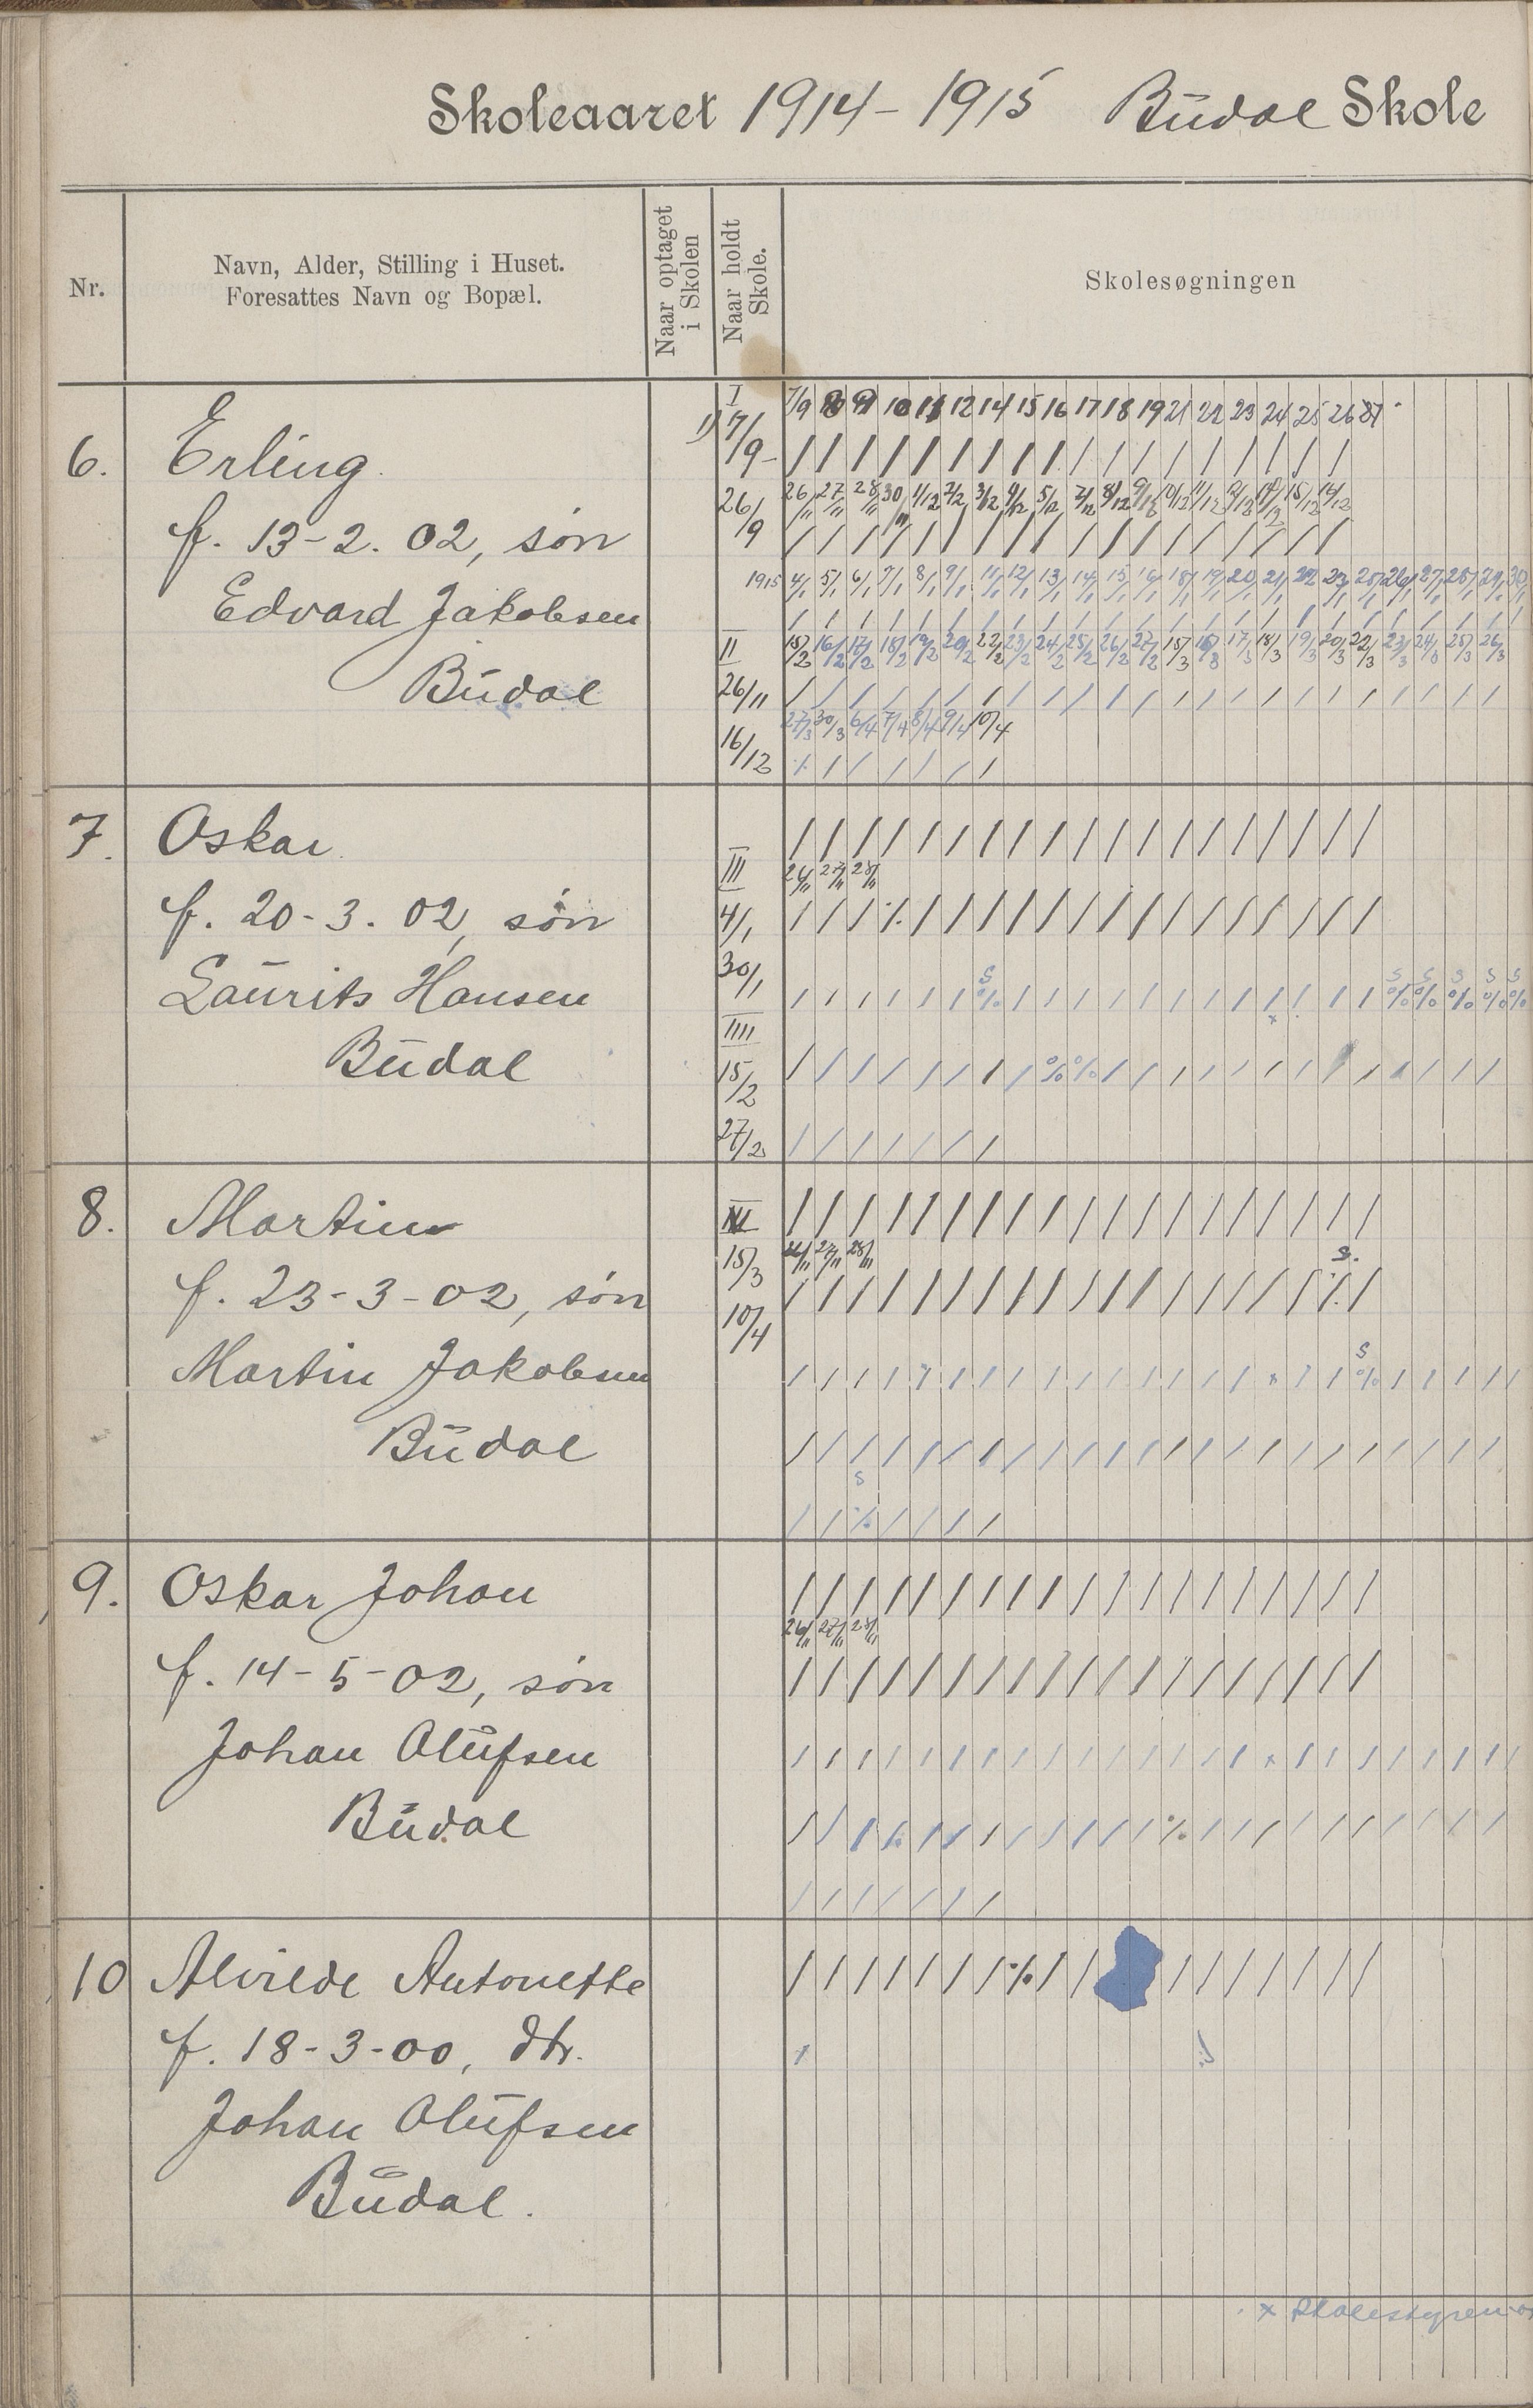 Skoleaaret 1914-1915 Budal Skole
Nr.
Navn, Alder, Stilling i Huset.
Foresattes Navn og Bopæl.
Naar optaget
i Skolen
Naar holdt
Skole.
Skolesøgningen
6. Erling
f. 13-2.02, søn
Edvard Jakobsen
Budal
I
7/9-
26/9
II
26/11
16/12
7/9 8 9 10 11 12 14 15 16 17 18 19 21 22 23 24 25 26
26/11 27/11 28/11 30/11 1/12 2/12 3/12 4/12 5/12 7/12 8/12 9/12 10/12 11/12 12/12 14/12 15/12
1915 4/1 5/1 6/1 7/1 8/1 9/1 11/1 12/1 13/1 14/1 15/1 16/1 18/1 19/1 20/1 21/1 22 23/1 25/1 26/1 27/1 28/1 29/1 30/1
15/2 16/2 17/2 18/2 19/2 20/2 22/2 23/2 24/2 25/2 26/2 27/2 15/3 16/3 17/3 18/3 19/3 20/3 22/3 23/3 24/3 25/3 26/3
27/3 30/3 6/4 7/4 8/4 9/4 10/4
7. Oskar
f. 20-3.02, søn
Laurits Hansen
Budal
III
4/1
30/1
IIII
15/2
27/2
26/11 27/11 28/11
S S S S S S
8. Martin
f. 23-3-02, søn
Martin Jakobsen
Budal
15/3
10/4
26/11 27/11 28/11
S.
S
S
9. Oskar Johan
f. 14-5-02, søn
Johan Olufsen
Budal
26/11 27/11 28/11
10 Alvilde Antonette
f. 18-3-00, dtr.
Johan Olufsen
Budal.
x Skolestyrem